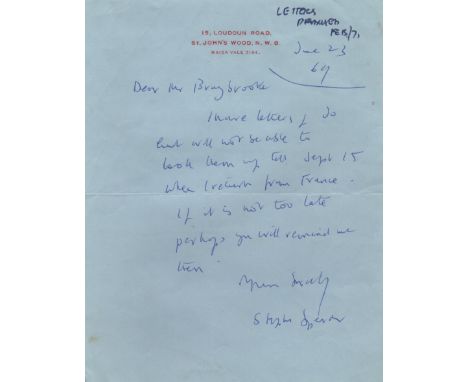 LETTERS
PRAISED
FEB/71
15, LOUDOUN ROAD,
ST. JOHN'S WOOD, N.W. 8.
MAIDA VALE 7194.
June 23
69
Dear Mr Braybrooke
I have letters, I do
but will not be able to
look them up till Sept 15
when I return from France.
If it is not too late
perhaps you will remind me
then.
Yours Sincerely
Stephen Spender